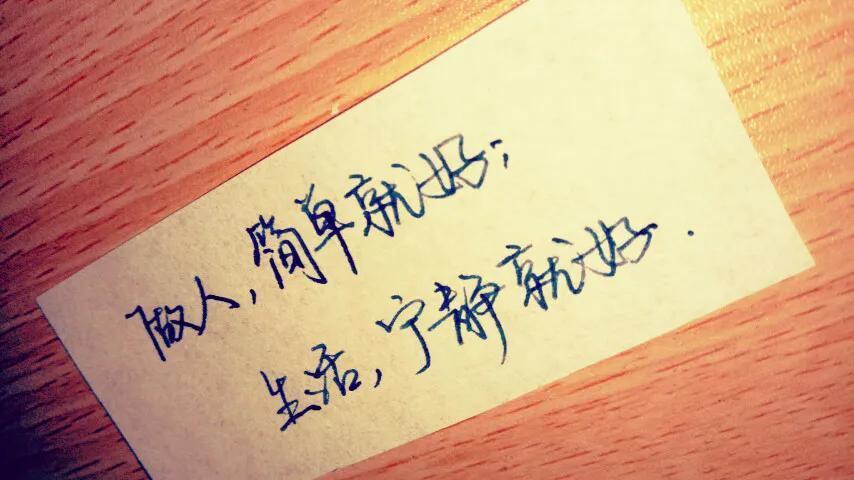 做人,简单就好;
生活,宁静就好.